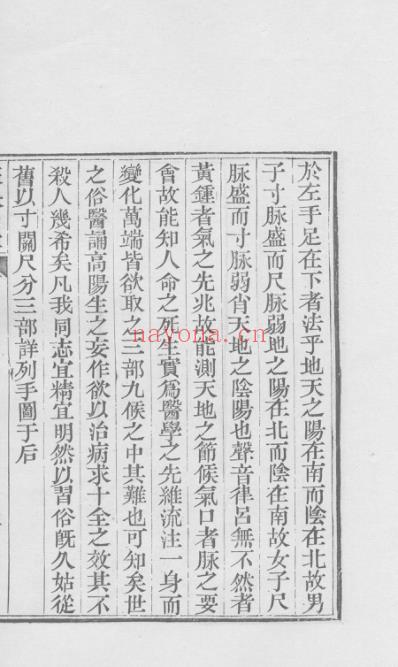 於左手足在下者法乎地天之陽在南而陰在北故男
子寸脉盛而尺脉弱地之陽在北而陰在南故女子尺
脉盛而寸脉弱肖天地之陰陽也聲音律呂無不然者
黃鍾者氣之先兆故能測天地之節候氣口者脉之要
會故能知人命之死生實爲醫學之先維流注一身而
變化萬端皆欲取之三部九候之中其難也可知矣世
之俗醫誦高陽生之妄作欲以治病求十全之效其不
殺人幾希矣凡我同志宜精宜明然以習俗旣久姑從
舊以寸關尺分三部詳列手圖于后
nayona.cn